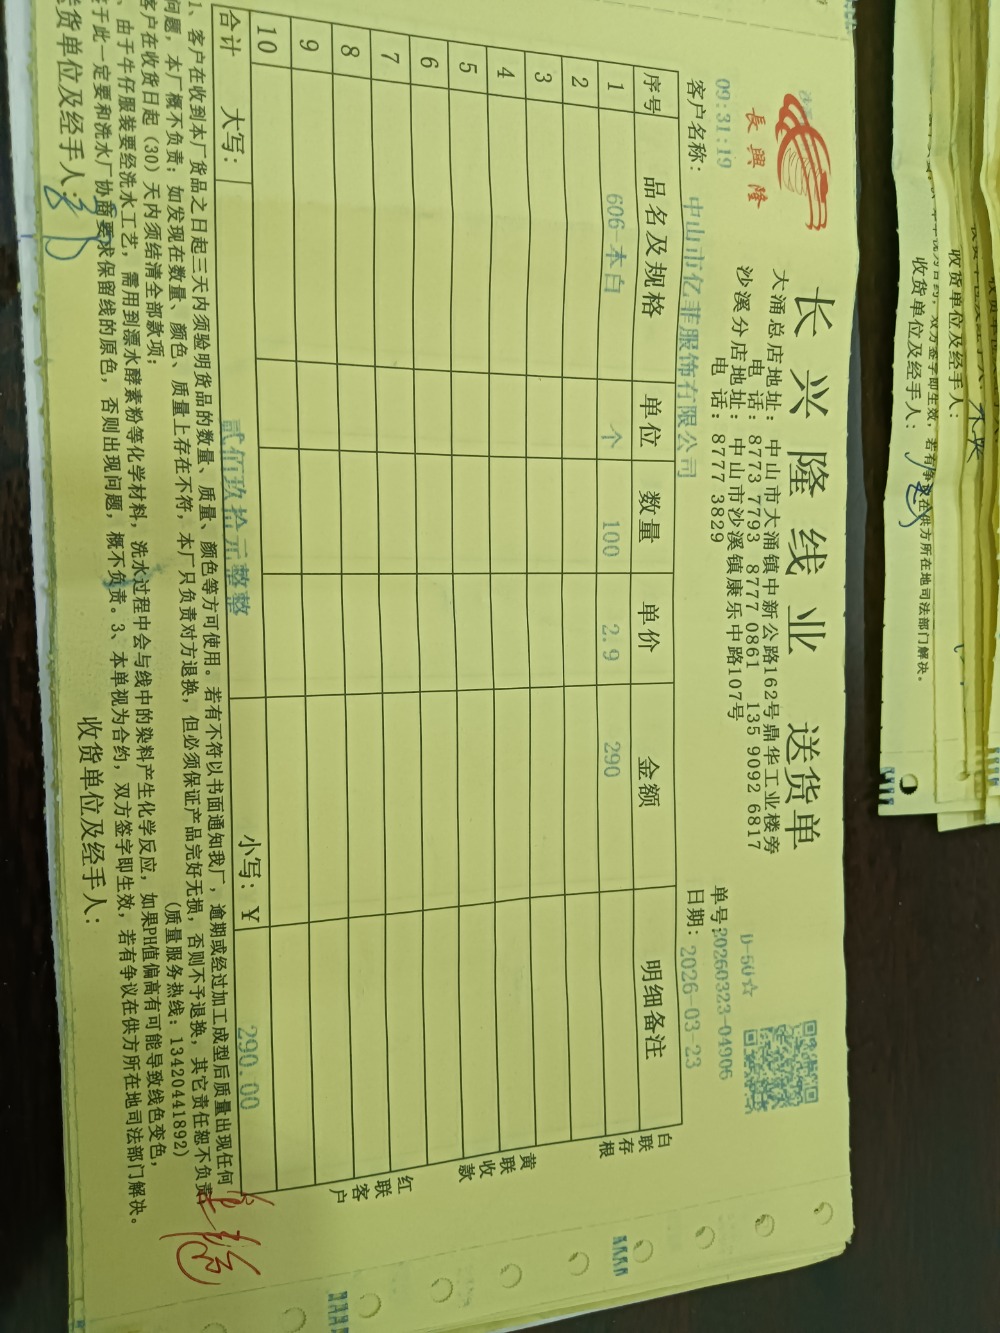 長興隆
长兴隆线业 送货单
大涌总店地址:中山市大涌镇中新公路162号鼎华工业楼旁
电 话:8773 7793 8777 0861 135 9092 6817
沙溪分店地址:中山市沙溪镇康乐中路107号
电 话:8777 3829
D-50☆
09:31:19
单号:20260323-04906
客户名称:中山市亿菲服饰有限公司
日期:2026-03-23
序号 品名及规格 单位 数量 单价 金额 明细备注
1 606-本白 个 100 2.9 290
2
3
4
5
6
7
8
9
10
合计 大写: 贰佰玖拾元整整 小写:¥ 290.00
白联存根
黄联收款
红联客户
1、客户在收到本厂货品之日起三天内须验明货品的数量、质量、颜色等方可使用。若有不符以书面通知我厂,逾期或经过加工成型后质量出现任何
问题,本厂概不负责;如发现在数量、颜色、质量上存在不符,本厂只负责对方退换,但必须保证产品完好无损,否则不予退换,其它责任恕不负责
客户在收货日起(30)天内须结清全部款项; (质量服务热线:13420441892)
、由于牛仔服装要经洗水工艺,需用到漂水酵素粉等化学材料,洗水过程中会与线中的染料产生化学反应,如果PH值偏高有可能导致线色变色,
于此一定要和洗水厂协商要求保留线的原色,否则出现问题,概不负责。3、本单视为合约,双方签字即生效,若有争议在供方所在地司法部门解决。
货单位及经手人:
收货单位及经手人:
收货单位及经手人:
收货单位及经手人:
双方签字即生效,若有争议在供方所在地司法部门解决。